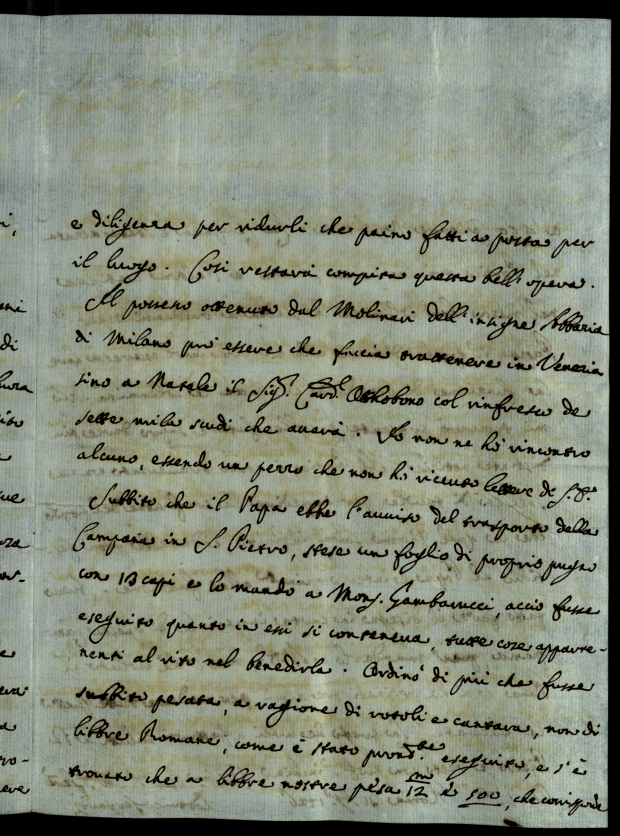 e diligenza per ridurli che paino fatti a posta per
il luogo. Così restarà compita questa bell'opera.
Al possesso ottenuto dal Molinari dell'insigne Abbazia
di Milano può essere che faccia trattenere in Venezia
sino a Natale il Sig.r Card.l Otthobono col rinfresco de
sette mila scudi che averà. Io non ne hò rincontro
alcuno, essendo un pezzo che non hò ricevuto lettere di S.E.
Subbito che il Papa ebbe l'avviso del trasporto della
Campana in S. Pietro, stese un foglio di proprio pugno
con 13 capi e lo mandò a Mons. Gambarucci, acciò fusse
eseguito quanto in essi si conteneva, tutte cose apparte-
nenti al rito nel benedirla. Ordinò di più che fusse
subbito pesata, a ragione di rotoli e cantara, non di
libbre Romane, come è stato pront.te eseguito, e s'è
trovato che a libbre nostre pesa 12 m e 500, che corrisponde